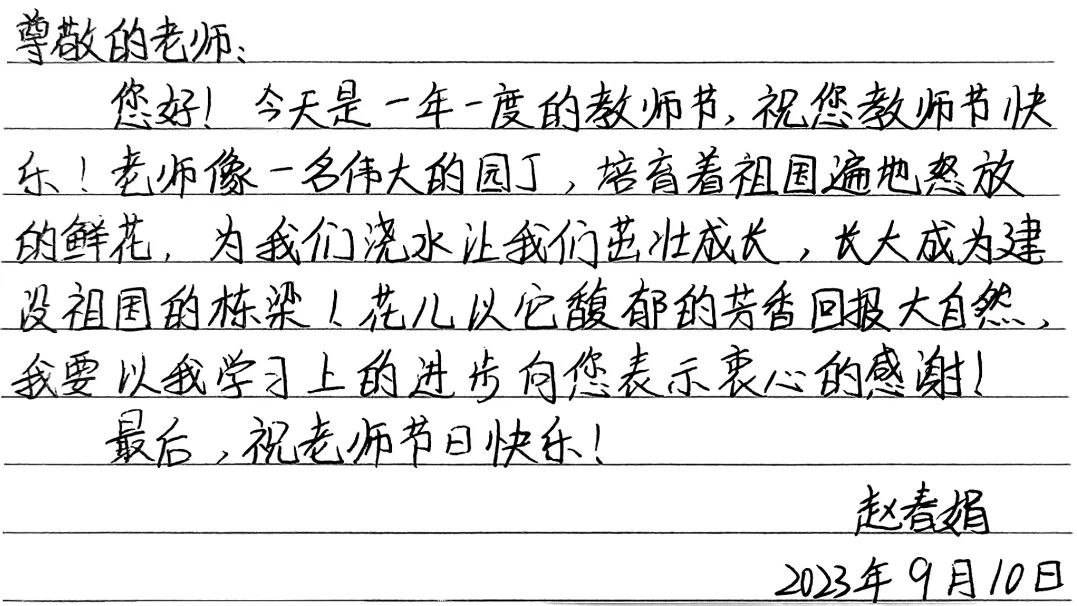 尊敬的老师:
您好!今天是一年一度的教师节,祝您教师节快
乐!老师像一名伟大的园丁,培育着祖国遍地怒放
的鲜花,为我们浇水让我们茁壮成长,长大成为建
设祖国的栋梁!花儿以它馥郁的芳香回报大自然,
我要以我学习上的进步向您表示衷心的感谢!
最后,祝老师节日快乐!
赵春娟
2023年9月10日